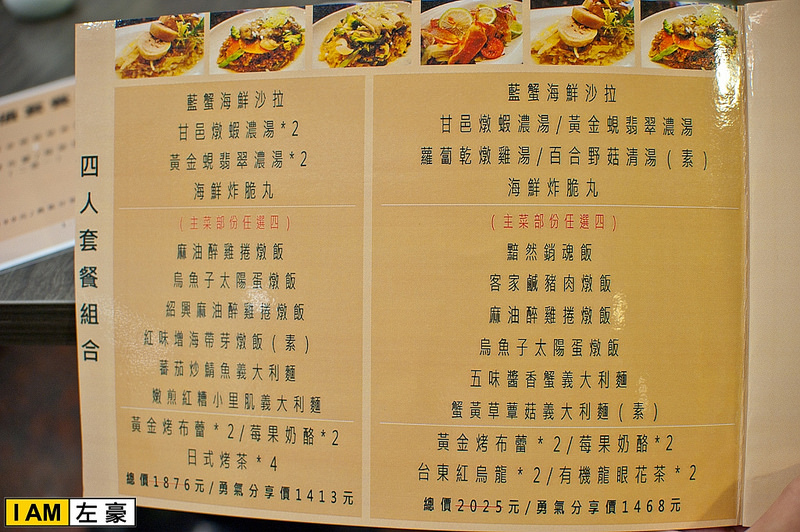 四人套餐組合
藍蟹海鮮沙拉
甘邑燉蝦濃湯*2
黃金蜆翡翠濃湯*2
海鮮炸脆丸
(主菜部份任選四)
麻油醉雞捲燉飯
烏魚子太陽蛋燉飯
紹興麻油醉雞捲燉飯
紅味增海帶芽燉飯(素)
蕃茄炒鯖魚義大利麵
嫩煎紅糟小里肌義大利麵
黃金烤布蕾*2/莓果奶酪*2
日式烤茶*4
總價1876元/勇氣分享價1413元
藍蟹海鮮沙拉
甘邑燉蝦濃湯/黃金蜆翡翠濃湯
蘿蔔乾燉雞湯/百合野菇清湯(素)
海鮮炸脆丸
(主菜部份任選四)
黯然銷魂飯
客家鹹豬肉燉飯
麻油醉雞捲燉飯
烏魚子太陽蛋燉飯
五味醬香蟹義大利麵
蟹黃草蕈菇義大利麵(素)
黃金烤布蕾*2/莓果奶酪*2
台東紅烏龍*2/有機龍眼花茶*2
總價2025元/勇氣分享價1468元
I AM 左豪